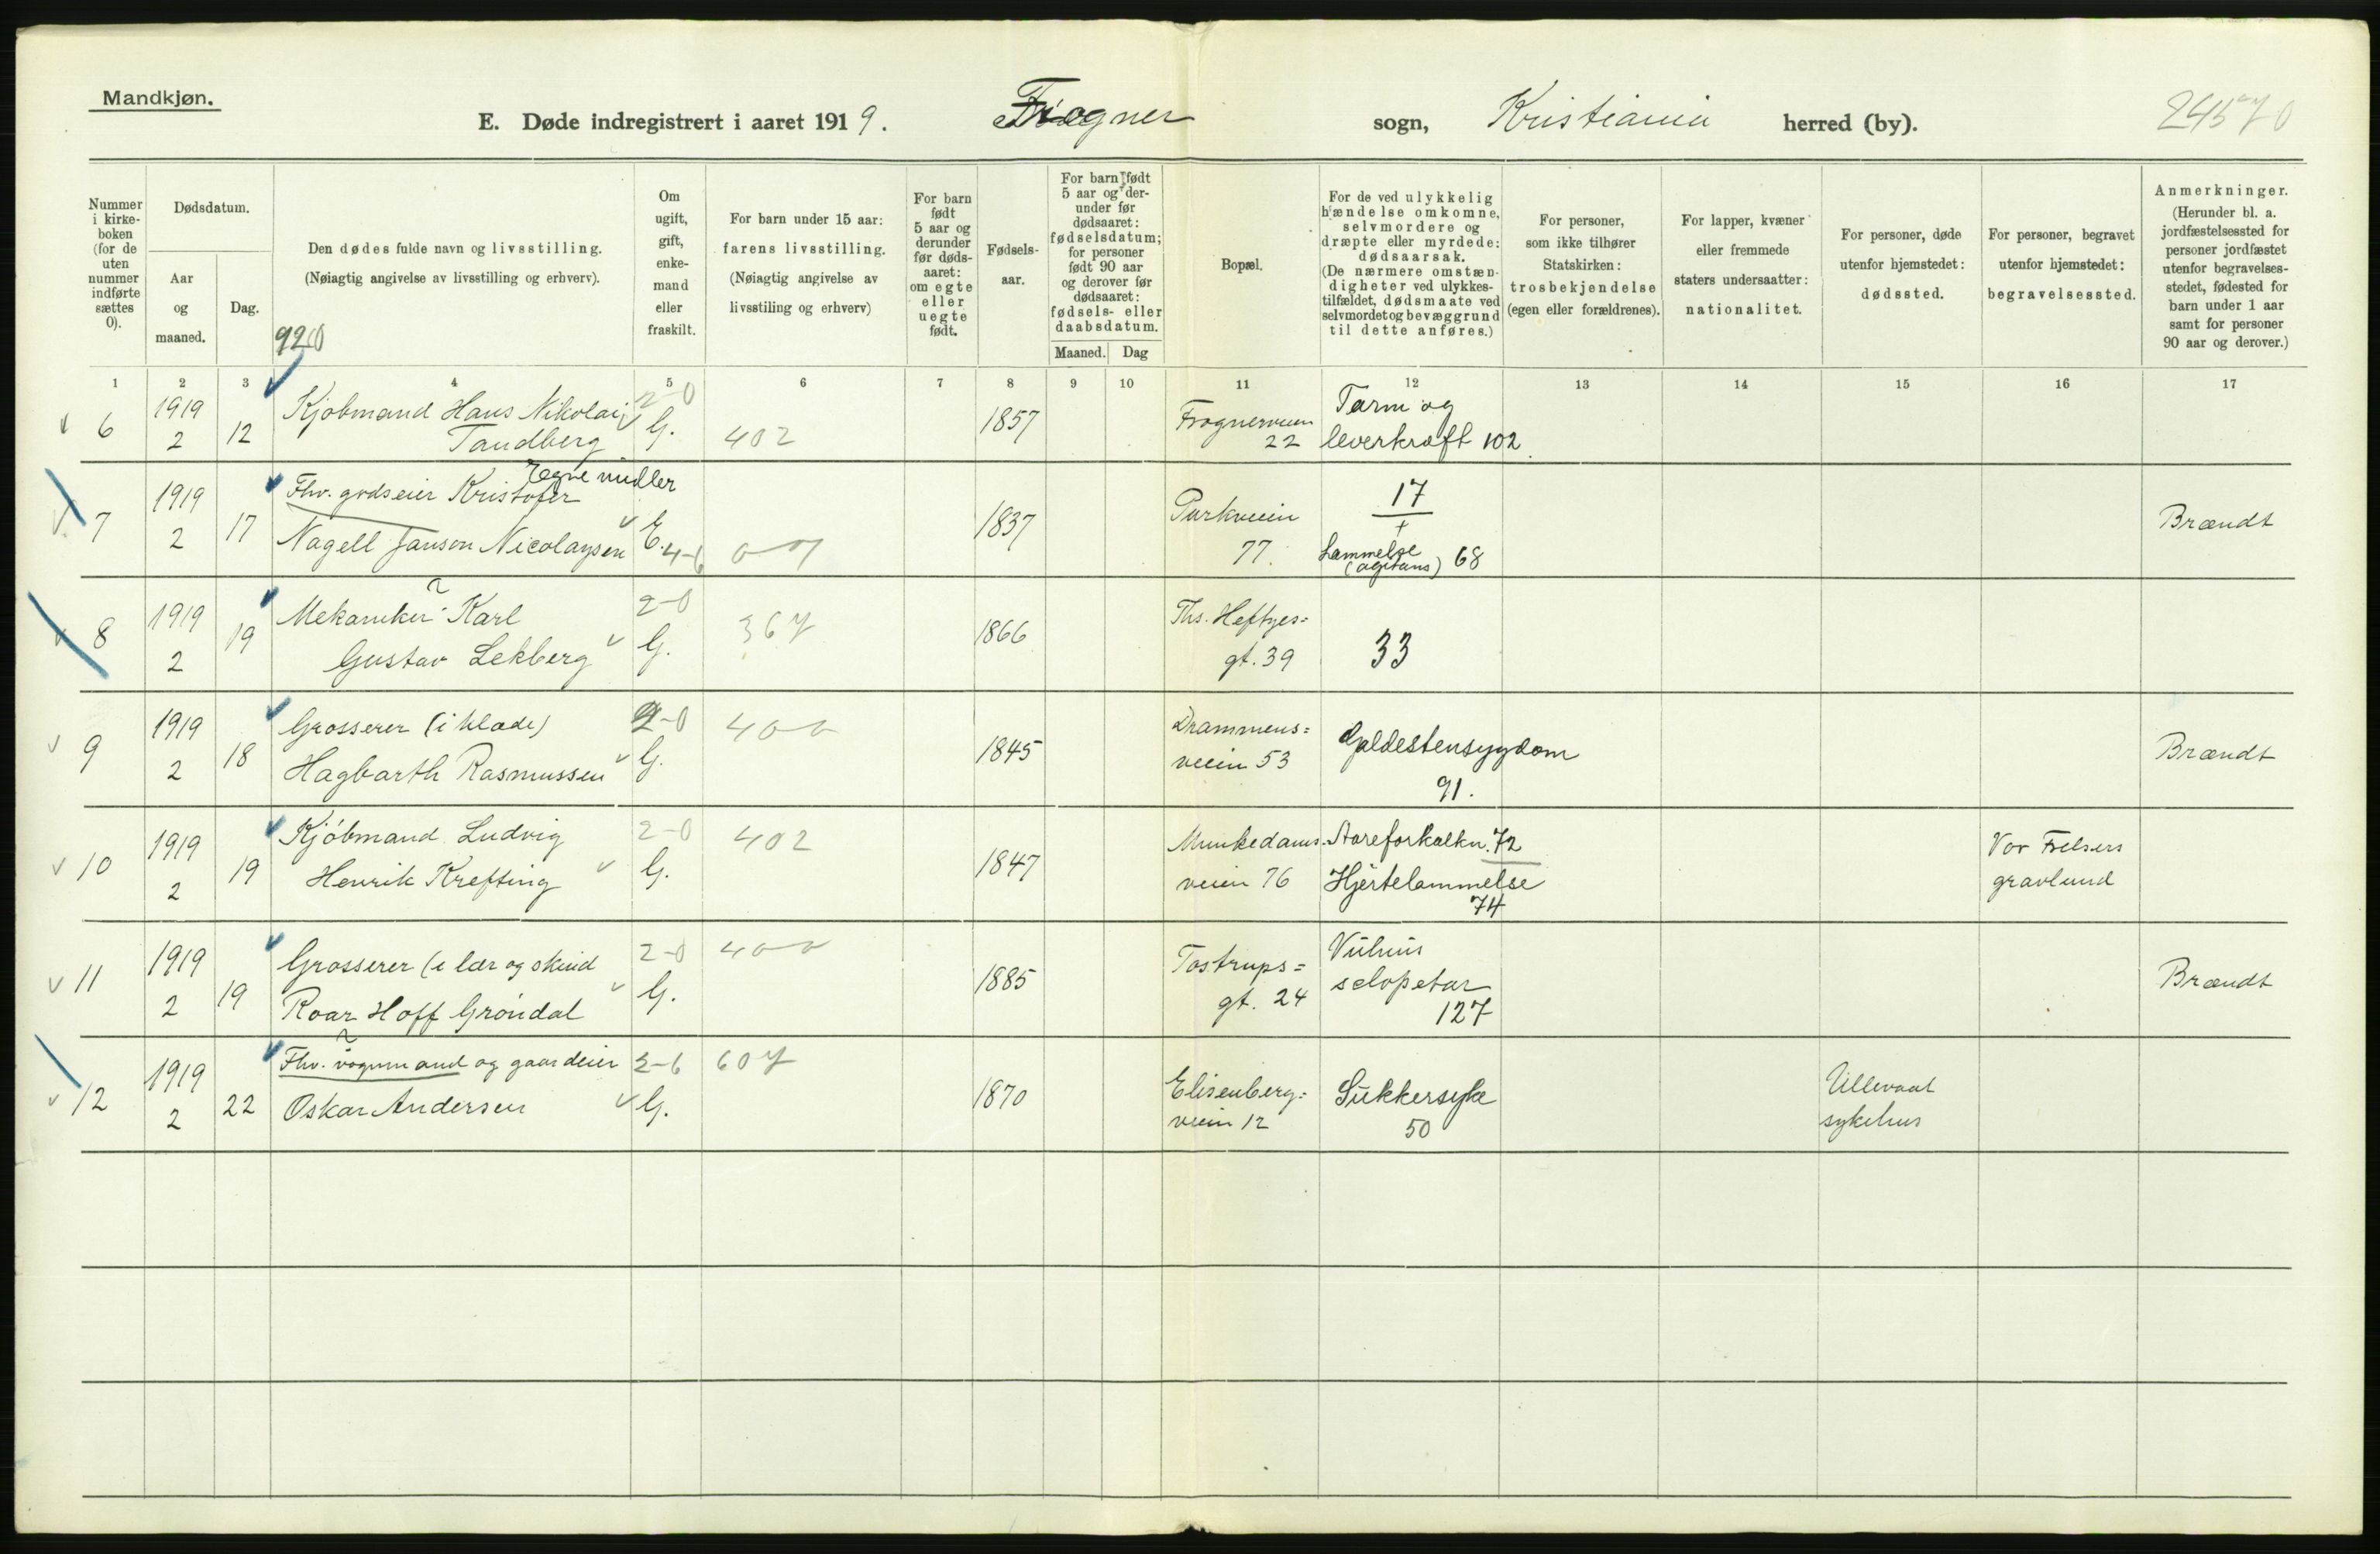 Mandkjøn.
E. Døde indregistrert i aaret 1919. Frogner sogn, Kristiania herred (by).
24570
Nummer i kirke-boken (for de uten nummer indførte sættes 0).
Dødsdatum.
Aar og maaned.
Dag.
Den dødes fulde navn og livsstilling.
(Nøiagtig angivelse av livsstilling og erhverv).
920
Om ugift, gift, enke-mand eller fraskilt.
For barn under 15 aar:
farens livsstilling.
(Nøiagtig angivelse av
livsstiling og erhverv)
For barn født 5 aar og derunder før døds-aaret: om egte eller uegte født.
Fødsels-aar.
For barn født 5 aar og der-under før dødsaaret: fødselsdatum; for personer født 90 aar og derover før dødsaaret: fødsels- eller daabsdatum.
Maaned. Dag
Bopæl.
For de ved ulykkelig hændelse omkomne, selvmordere og dræpte eller myrdede: dødsaarsak.
(De nærmere omstæn-digheter ved ulykkes-tilfældet, dødsmaate ved selvmordet og bevæggrund til dette anføres.)
For personer, som ikke tilhører Statskirken: trosbekjendelse (egen eller forældrenes).
For lapper, kvæner eller fremmede staters undersaatter: nationalitet.
For personer, døde utenfor hjemstedet: dødssted.
For personer, begravet utenfor hjemstedet: begravelsessted.
Anmerkninger.
(Herunder bl. a. jordfæstelsessted for personer jordfæstet utenfor begravelses-stedet, fødested for barn under 1 aar samt for personer 90 aar og derover.)
1 2 3 4 5 6 7 8 9 10 11 12 13 14 15 16 17
6 1919 2 12 Kjøbmand Hans Nikolai Tandberg 2-0 G. 402 1857 Frognerveien 22 Tarm og leverkræft 102
7 1919 2 17 Fhv. godseier Kristofer Nagell Janson Nicolaysen Egne midler E. 4-6 1837 Parkveien 77. 17 + Lammelse (agitans) 68 Brændt
8 1919 2 19 Mekaniker Karl Gustav Lekberg 2-0 G. 367 1866 Ths. Heftyes= gt. 39 33
9 1919 2 18 Grosserer (i klæde) Hagbarth Rasmussen 2-0 G. 400 1845 Drammens= veien 53 Galdestensygdom 91. Brændt
10 1919 2 19 Kjøbmand Ludvig Henrik Krefting 2-0 G. 402 1847 Munkedams- veien 76 Aareforkalkn. 72 Hjertelammelse 74 Vor Frelsers gravlund
11 1919 2 19 Grosserer (i lær og skind Roar Hoff Grøndal 2-0 G. 400 1885 Tostrups= gt. 24 Vulnus sclopetar 127 Brændt
12 1919 2 22 Fhv. vognmand og gaardeier Oskar Andersen 2-6 G. 607 1870 Elisenberg= veien 12 Sukkersyke 50 Ullevaal sykehus